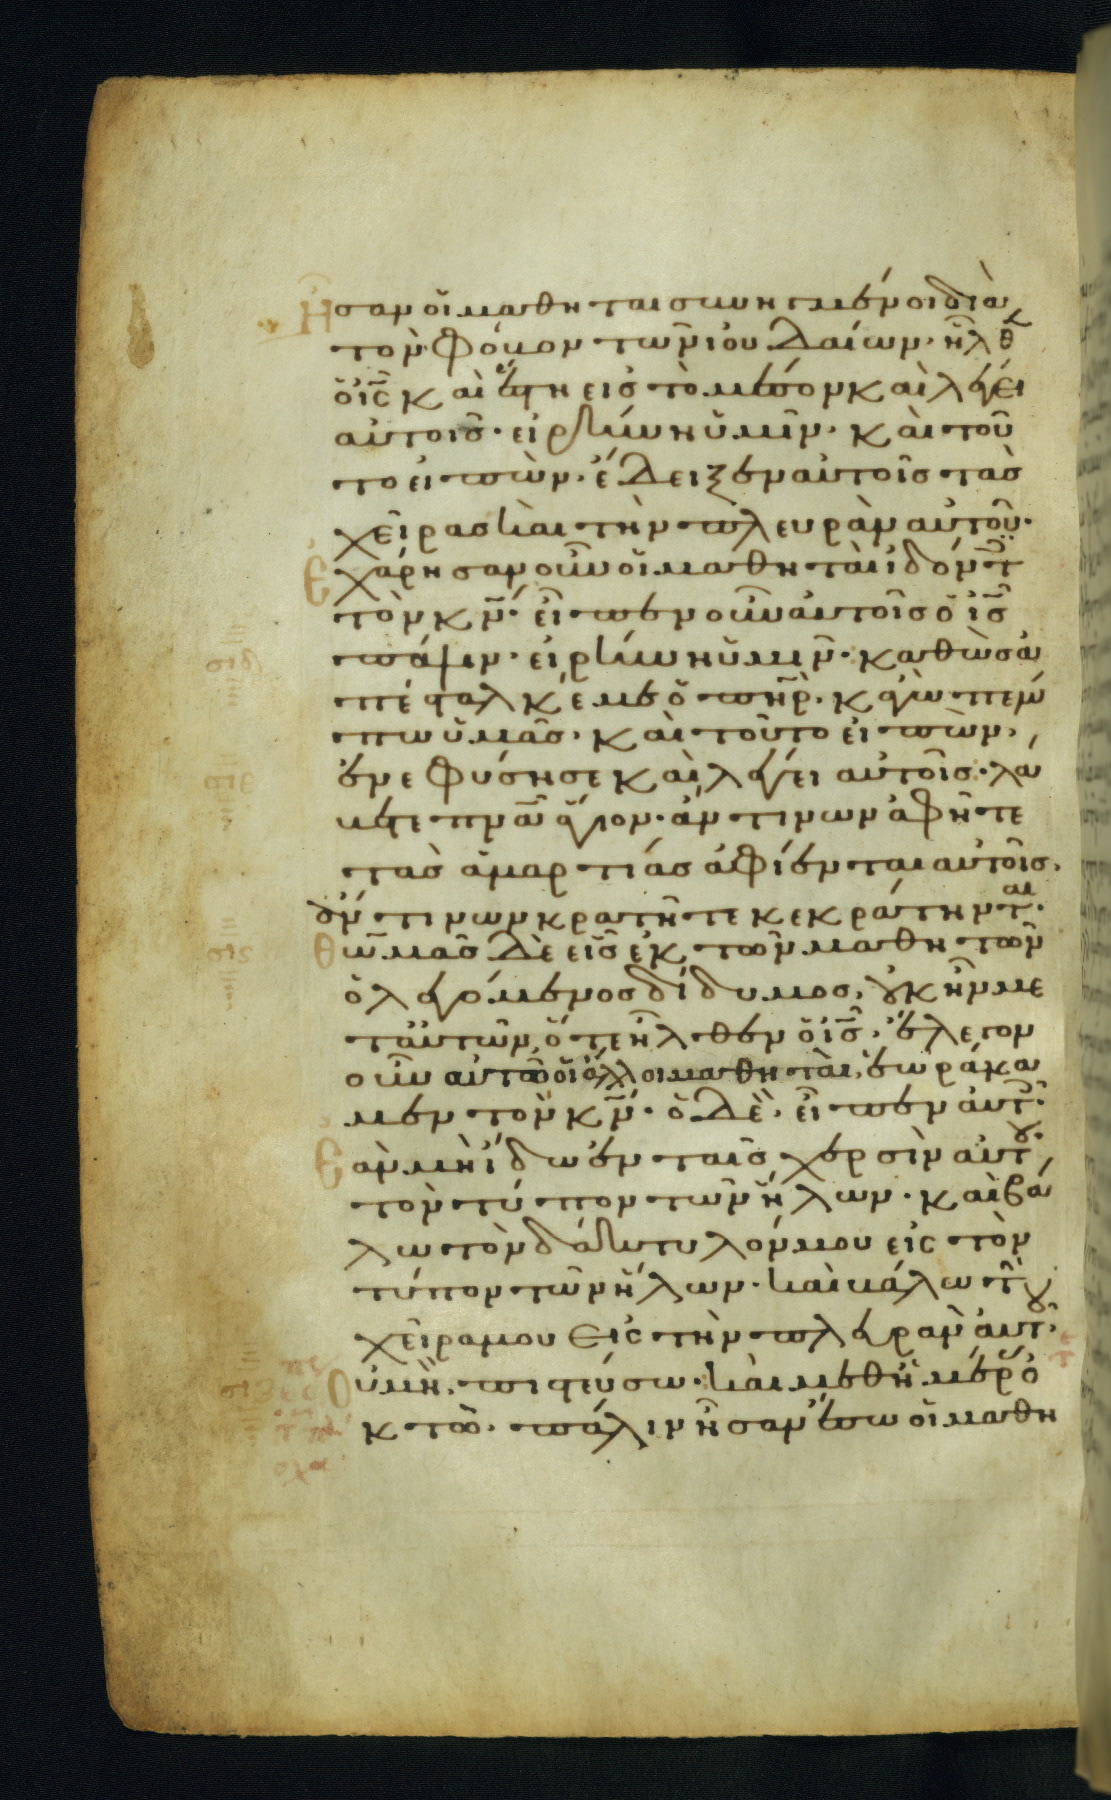 Ησαν οἱ μαθηται συνηγμένοι διὰ
τὸν φόβον τῶν ἰουδαίων· ἦλθεν
ὁ ις̅ καὶ ἔστη εἰς τὸ μέσον καὶ λέγει
αὐτοῖς· εἰρήνη ὑμῖν· καὶ τοῦ
το εἰπὼν· ἔδειξεν αὐτοῖς τὰς
χεῖρας καὶ τὴν πλευρὰν αὐτοῦ·
Ἐχάρησαν οὖν οἱ μαθηταὶ ἰδόντ
τὸν κν̅· εἶπεν οὖν αὐτοῖς ὁ ις̅
πάλιν· εἰρήνη ὑμῖν· καθὼς ἀ
πέσταλκέ με ὁ πηρ̅· κἀγὼ πέμ
πω ὑμᾶς· καὶ τοῦτο εἰπὼν·
ἐνεφύσησε καὶ λέγει αὐτοῖς· λά
βετε πνα̅ ἅγιον· ἄν τινων ἀφῆτε
τὰς ἁμαρτίας ἀφίενται αὐτοῖς·
ἄν τινων κρατῆτε κεκράτηνται·
θωμᾶς δὲ εἷς ἐκ τῶν μαθητῶν
ὁ λεγόμενος δίδυμος, οὐκ ἦν με
τ' αὐτῶν, ὅτε ἦλθεν ὁ ις̅· ἔλεγον
οὖν αὐτῶ οἱ ἄλλοι μαθηταὶ, ἑωράκα
μεν τὸν κν̅· ὁ δὲ· εἶπεν αὐτοῖς·
Ἐὰν μὴ ἴδω ἐν ταῖς χερσὶν αὐτοῦ,
τὸν τύπον τῶν ἥλων· καὶ βά
λω τὸν δάκτυλόν μου εἰς τὸν
τύπον τῶν ἥλων· καὶ βάλω τὴν
χεῖρα μου εἰς τὴν πλευρὰν αὐτοῦ·
Οὐ μὴ πιστεύσω· καὶ μεθ' ἡμέρας ὀ
κτὼ· πάλιν ἦσαν ἔσω οἱ μαθη